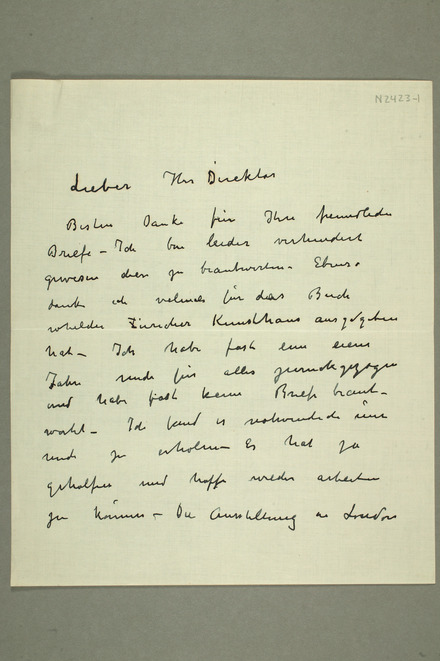 N2423-1
Lieber Herr Direktor
Besten Danke für Ihre freundliche
Briefe – Ich bin leider verhindert
gewesen diese zu beantworten. Ebenso
danke ich vielmals für das Buch
welches Züricher Kunsthaus ausgegeben
hat – Ich habe fast ein
Jahr mich für alles zurückgezogen
und habe fast keine Briefe beant-
wortet – Ich fand es nothwendig
mich zu erholen Es hat ja
geholfen und hoffe wieder arbeiten
zu können – Die Ausstellung in London